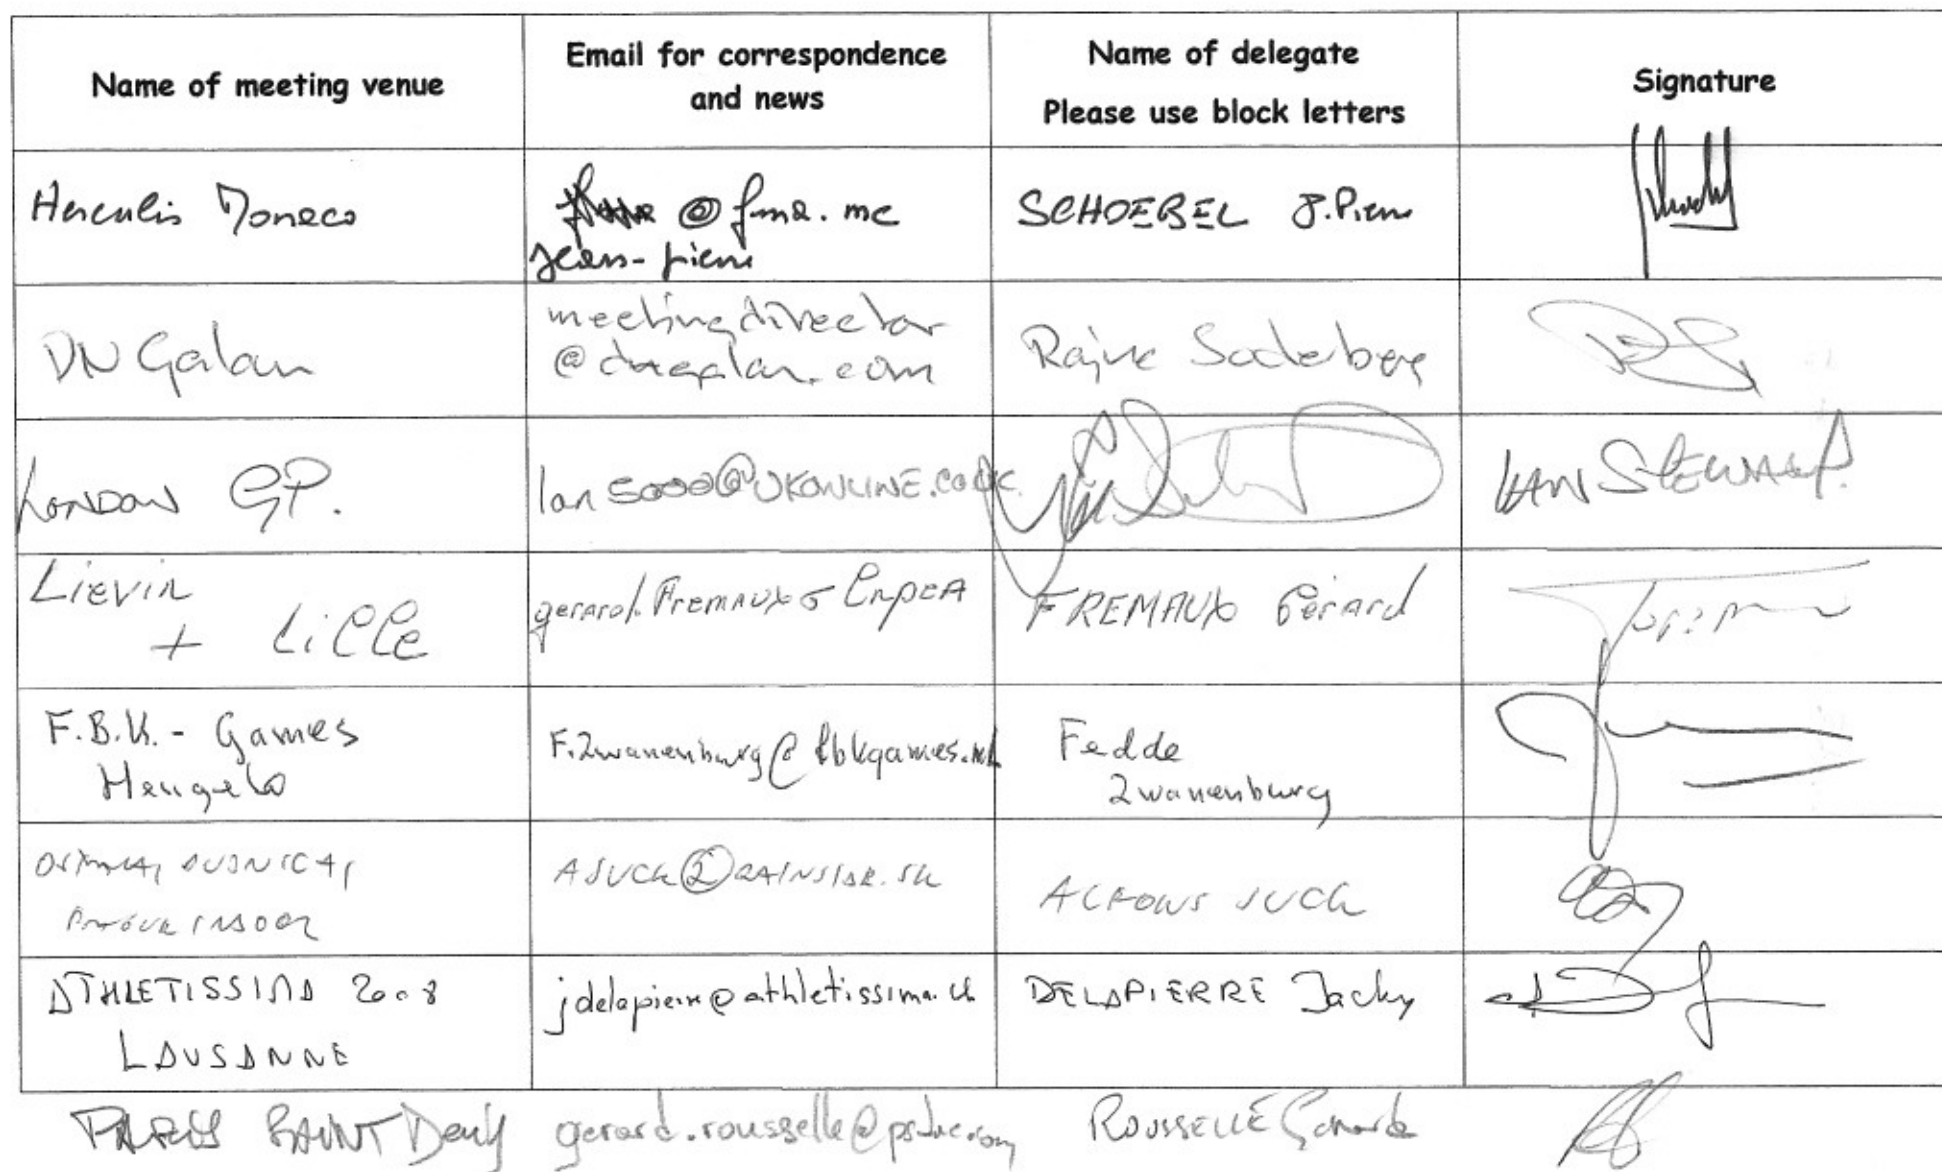 Name of meeting venue
Email for correspondence
and news
Name of delegate
Please use block letters
Signature
Herculis Monaco
@ fma.mc
Jean-pierre
SCHOEBEL J.Pierre
DN Galan
meetingdirector
@dngalan.com
Rajne Soderberg
LONDON GP.
Ian5000@UKONLINE.CO.UK
IAN STEWART.
LIEVIN
+ LiLLe
FREMAUX Gérard
F.B.K. - Games
Hengelo
F.Zwanenburg@fbkgames.nl
Fedde
Zwanenburg
PRAGUE INDOOR
ASUCK@RAINSIDE.SK
ALFONS JUCK
ATHLETISSIMA 2008
LAUSANNE
jdelapierre@athletissima.ch
DELAPIERRE Jacky
PARIS SAINT Denis
gerard.rousselle@
ROUSSELLE Gerard